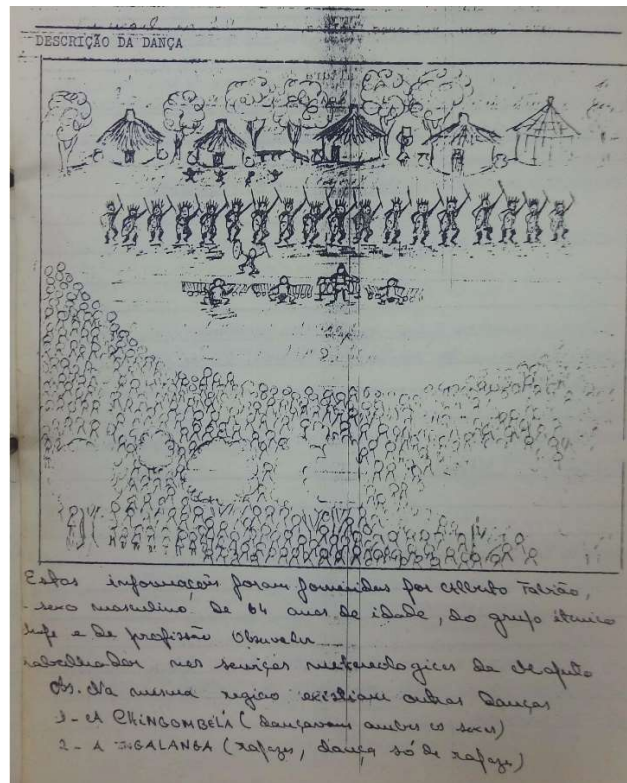 DESCRIÇÃO DA DANÇA
Estas informações foram fornecidas por Alberto Fabião,
sexo masculino de 64 anos de idade, do grupo étnico
e de profissão Observador
trabalhador nos serviços meteorologicos da Maputo
Obs. Na mesma região existiam outras Danças
1- A CHINGOMBÉLÁ (dançavam ambos os sexos)
2- A GALANGA (rapazes, dança só de rapazes)